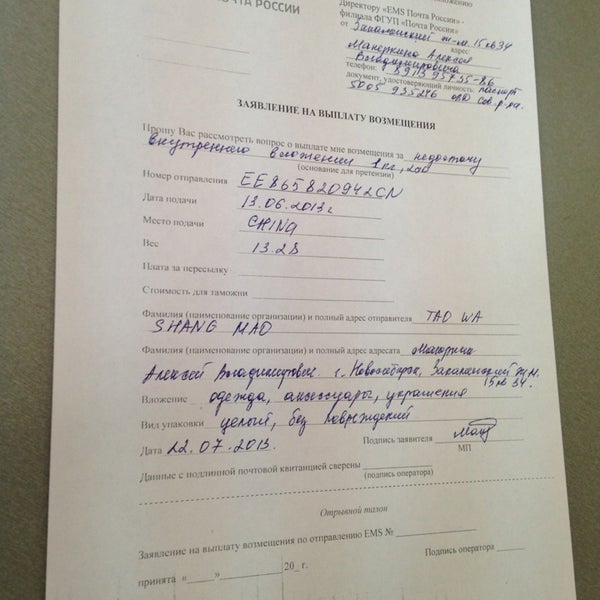 ПОЧТА РОССИИ
Директору «EMS Почта России» -
филиала ФГУП «Почта России»
от Закаменский ж-м. 15 кв 34
адрес:
Манеркина Алексея
Владимировича
телефон: 8 913 957 55-86
документ, удостоверяющий личность: паспорт
5005 935246 ОВД Сов. р-на.
ЗАЯВЛЕНИЕ НА ВЫПЛАТУ ВОЗМЕЩЕНИЯ
Прошу Вас рассмотреть вопрос о выплате мне возмещения за недостачу
внутреннего вложения 1 кг, 200
(основание для претензии)
Номер отправления EE865820942CN
Дата подачи 13.06.2013 г
Место подачи CHINA
Вес 13.28
Плата за пересылку
Стоимость для таможни
Фамилия (наименование организации) и полный адрес отправителя TAO WA
SHANG MAO
Фамилия (наименование организации) и полный адрес адресата
Алексей Владимирович. г. Новосибирск, Закаменский ж.м.
15 кв 34.
Вложение одежда, аксессуары, украшения
Вид упаковки целый, без повреждений
Дата 22.07.2013. Подпись заявителя
МП
Данные с подлинной почтовой квитанцией сверены
(подпись оператора)
Отрывной талон
Заявление на выплату возмещения по отправлению EMS №
принята «___»__________20_ г. Подпись оператора